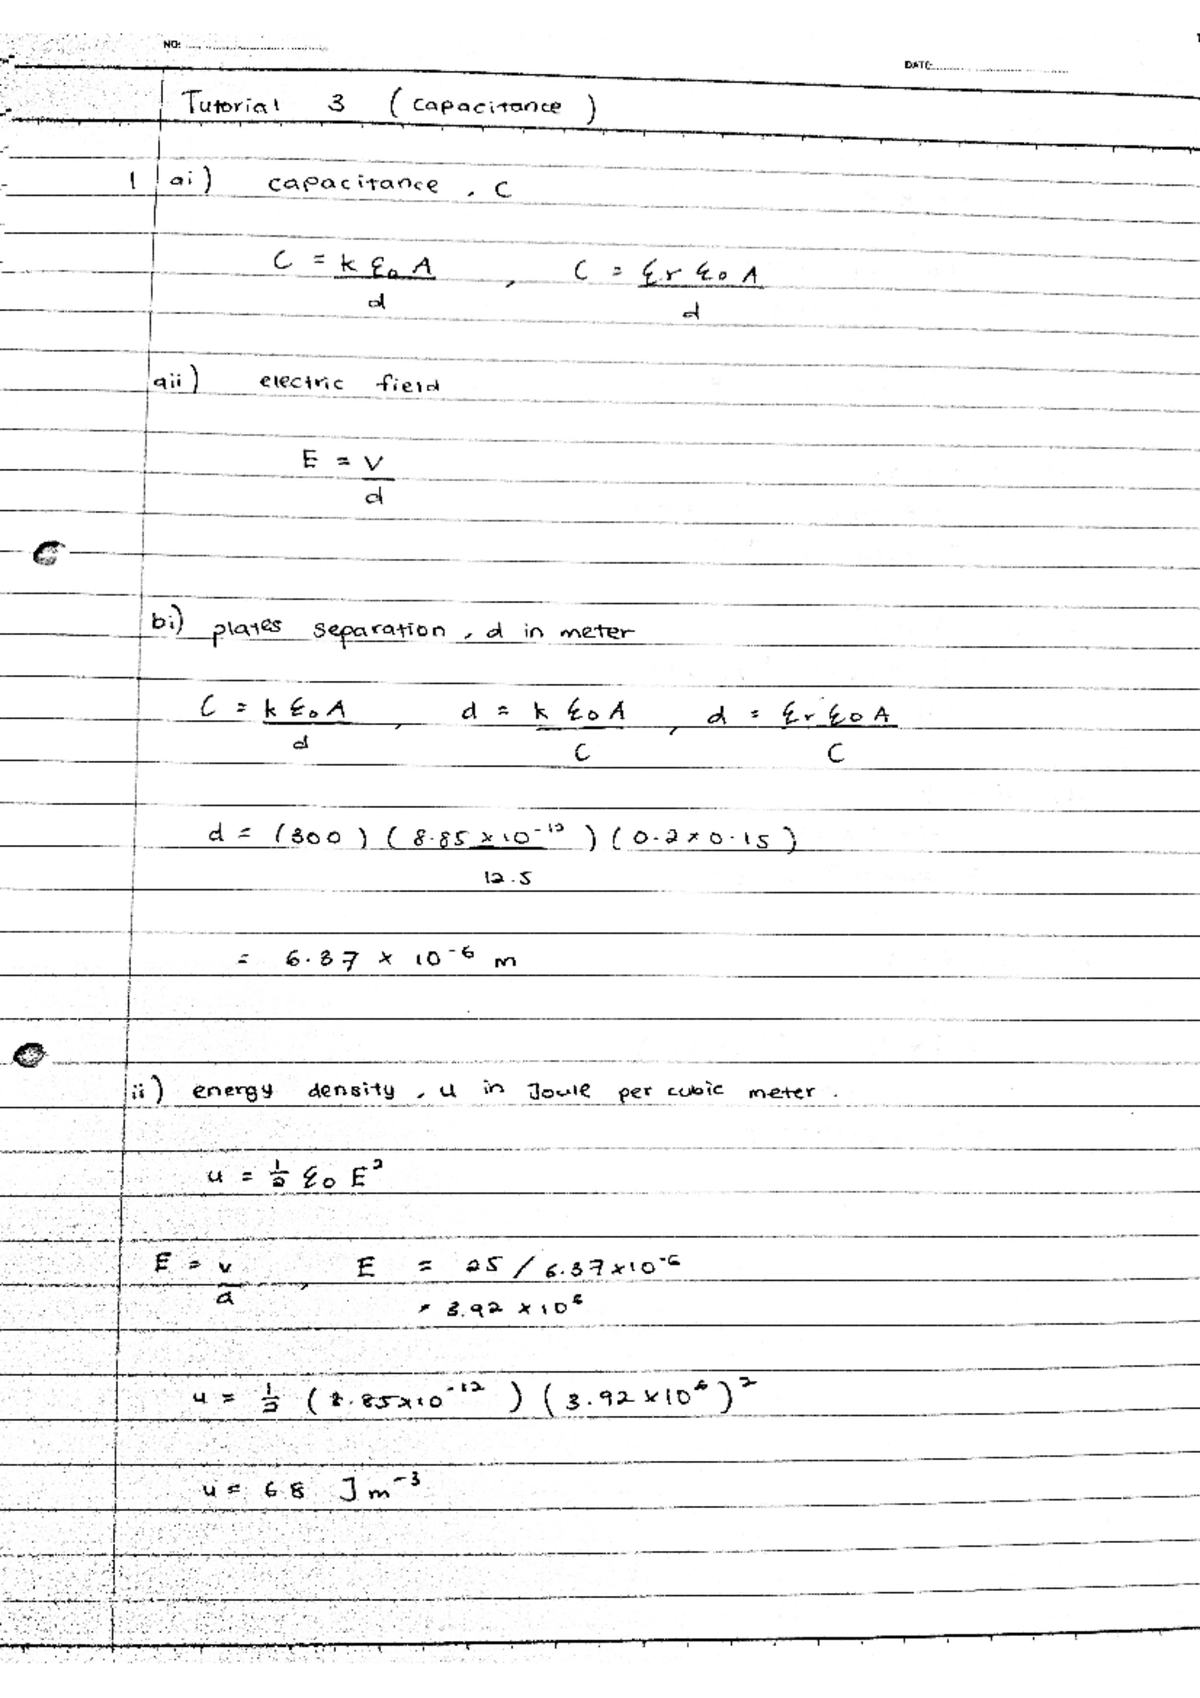 NO:
DATE:
Tutorial 3 (capacitance)
1 ai) capacitance, C
C = k ε₀ A / d , C = εr ε₀ A / d
aii) electric field
E = V / d
bi) plates separation, d in meter
C = k ε₀ A / d , d = k ε₀ A / C , d = εr ε₀ A / C
d = (300) (8.85 × 10⁻¹²) (0.2 × 0.15) / 12.5
= 6.37 × 10⁻⁶ m
ii) energy density, u in Joule per cubic meter.
u = ½ ε₀ E²
E = V / d , E = 25 / 6.37 × 10⁻⁶
= 3.92 × 10⁶
u = ½ (8.85 × 10⁻¹²) (3.92 × 10⁶)²
u = 68 Jm⁻³